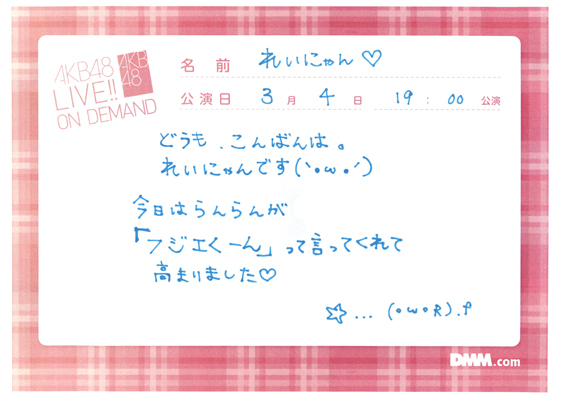 AKB48
LIVE!!
ON DEMAND
AKB
48
名前 れいにゃん♡
公演日 3月 4日 19:00 公演
どうも、こんばんは。
れいにゃんです(`•ω•´)
今日はらんらんが
「フジエくーん」って言ってくれて
高まりました♡
☆... (•ω•R).f
DMM.com